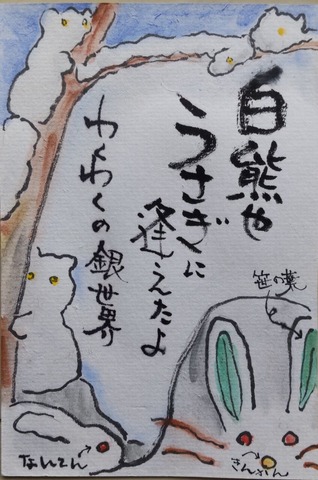 白熊や
うさぎに
逢えたよ
わくわくの銀世界
笹の葉
なんてん
きんかん